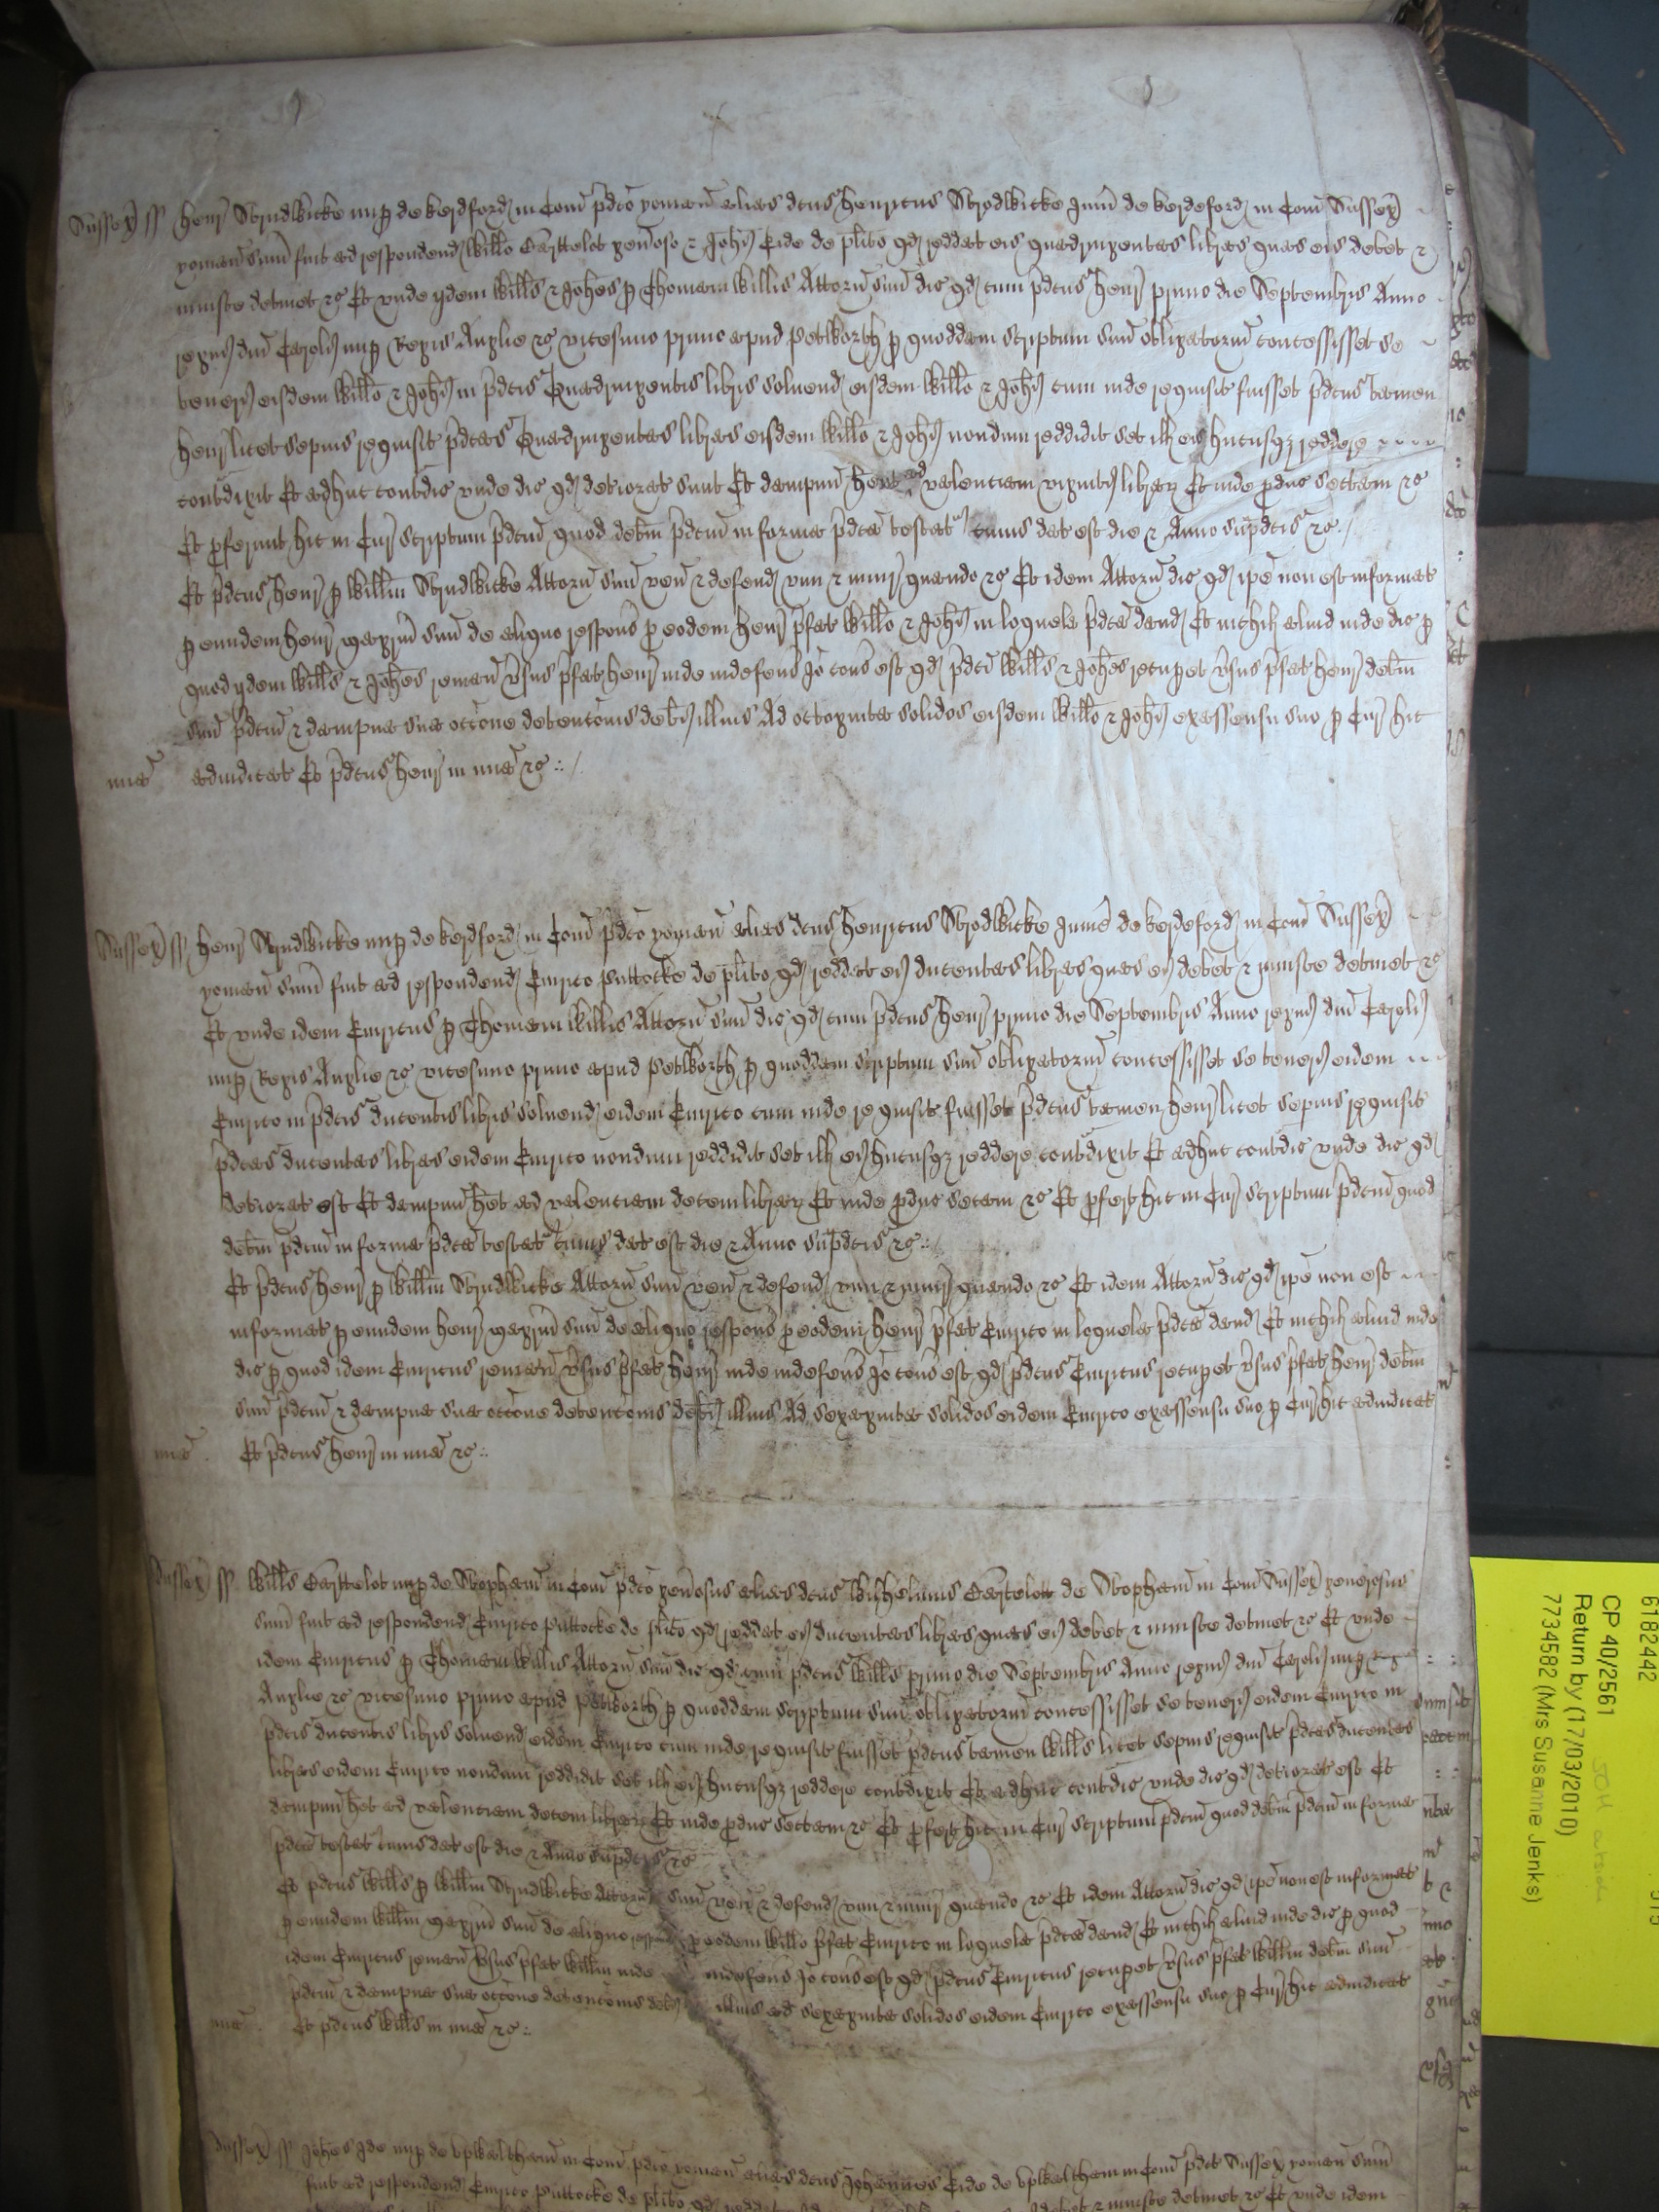 Sussex ss Henr Strudwicke nup de kerdford in Com pdco yoman alias dcus Henricus Strodwicke Junr de kerdeford in Com Sussex
yoman sum fuit ad respondend Willo Barttelot genoso & Johi Eide de plito qd reddat eis quadringentas libras quas eis debet &
iniuste detinet &c Et unde ijdem Wills & Johes p Thomam Willis Attorn suu dic qd cum pdcus Henr primo die Septembris Anno
regni dni Caroli nup Regis Anglie &c vicesimo primo apud Petworth p quoddam scriptum suu obligatoriu concessisset se
teneri eisdem Willo & Johi in pdcis Quadringentis libris solvend eisdem Willo & Johi cum inde requisit fuisset pdcus tamen
Henr licet sepius requisit pdcas Quadringentas libras eisdem Willo & Johi nondum reddidit set ill eis hucusq reddere
contdixit Et adhuc contdic unde dic qd deteriorat sunt Et dampnu hent ad valenciam viginti librar Et inde pduc sectam &c
Et pferunt hic in Cur scriptum pdcm quod debm pdcm in forma pdca testat cuius dat est die & Anno supdcis &c
Et pdcus Henr p Willm Strudwicke Attorn suu ven & defend vim & iniur quando &c Et idem Attorn dic qd ipe non est informat
p eundem Henr magrm suu de aliquo respons p eodem Henr pfat Willo & Johi in loquela pdca dand Et nichil aliud inde dic p
quod ijdem Wills & Johes reman vsus pfat Henr inde indefens Io cons est qd pdci Wills & Johes recupet vsus pfat Henr debm
suu pdcm & dampna sua occone detencois debi illius Ad octoginta solidos eisdem Willo & Johi ex assensu suo p Cur hic
mia adiudicat Et pdcus Henr in mia &c
Sussex ss Henr Strudwicke nup de kerdford in Com pdco yoman alias dcus Henricus Strodwicke Junr de kerdeford in Com Sussex
yoman sum fuit ad respondend Emrico Puttocke de plito qd reddat ei ducentas libras quas ei debet & iniuste detinet &c
Et unde idem Emricus p Thomam Willis Attorn suu dic qd cum pdcus Henr primo die Septembris Anno regni dni Caroli
nup Regis Anglie &c vicesimo primo apud Petworth p quoddam scriptum suu obligatoriu concessisset se teneri eidem
Emrico in pdcis ducentis libris solvend eidem Emrico cum inde requisit fuisset pdcus tamen Henr licet sepius requisit
pdcas ducentas libras eidem Emrico nondum reddidit set ill ei hucusq reddere contdixit Et adhuc contdic unde dic qd
deteriorat est Et dampnu het ad valenciam decem librar Et inde pduc sectam &c Et pfert hic in Cur scriptum pdcm quod
debm pdcm in forma pdca testat cuius dat est die & Anno supdcis &c
Et pdcus Henr p Willm Strudwicke Attorn suu ven & defend vim & iniur quando &c Et idem Attorn dic qd ipe non est
informat p eundem Henr magrm suu de aliquo respons p eodem Henr pfat Emrico in loquela pdca dand Et nichil aliud inde
dic p quod idem Emricus reman vsus pfat Henr inde indefens Io cons est qd pdcus Emricus recupet vsus pfat Henr debm
suu pdcm & dampna sua occone detencois debi illius Ad sexaginta solidos eidem Emrico ex assensu suo p Cur hic adiudicat
mia Et pdcus Henr in mia &c
Sussex ss Wills Barttelot nup de Stopham in Com pdco genosus alias dcus Wilhelmus Bartelott de Stopham in Com Sussex generosus
sum fuit ad respondend Emrico Puttocke de plito qd reddat ei ducentas libras quas ei debet & iniuste detinet &c Et unde
idem Emricus p Thomam Willis Attorn suu dic qd cum pdcus Wills primo die Septembris Anno regni dni Caroli nup Regis
Anglie &c vicesimo primo apud Petworth p quoddam scriptum suu obligatoriu concessisset se teneri eidem Emrico in
pdcis ducentis libris solvend eidem Emrico cum inde requisit fuisset pdcus tamen Wills licet sepius requisit pdcas ducentas
libras eidem Emrico nondum reddidit set ill ei hucusq reddere contdixit Et adhuc contdic unde dic qd deteriorat est Et
dampnu het ad valenciam decem librar Et inde pduc sectam &c Et pfert hic in Cur scriptum pdcm quod debm pdcm in forma
pdca testat cuius dat est die & Anno supdcis &c
Et pdcus Wills p Willm Strudwicke Attorn suu ven & defend vim & iniur quando &c Et idem Attorn dic qd ipe non est informat
p eundem Willm magrm suu de aliquo respons p eodem Willo pfat Emrico in loquela pdca dand Et nichil aliud inde dic p quod
idem Emricus reman vsus pfat Willm inde indefens Io cons est qd pdcus Emricus recupet vsus pfat Willm debm suu
pdcm & dampna sua occone detencois debi illius ad sexaginta solidos eidem Emrico ex assensu suo p Cur hic adiudicat
mia Et pdcus Wills in mia &c
Sussex ss Johes Ide nup de Upwaltham in Com pdco yoman alias dcus Johannes Eide de Upwaltham in Com pdca Sussex yoman sum
fuit ad respondend Emrico Puttocke de plito qd reddat debet & iniuste detinet &c Et unde idem
6182442
CP 40/2561
Return by (17/03/2010)
7734582 (Mrs Susanne Jenks)